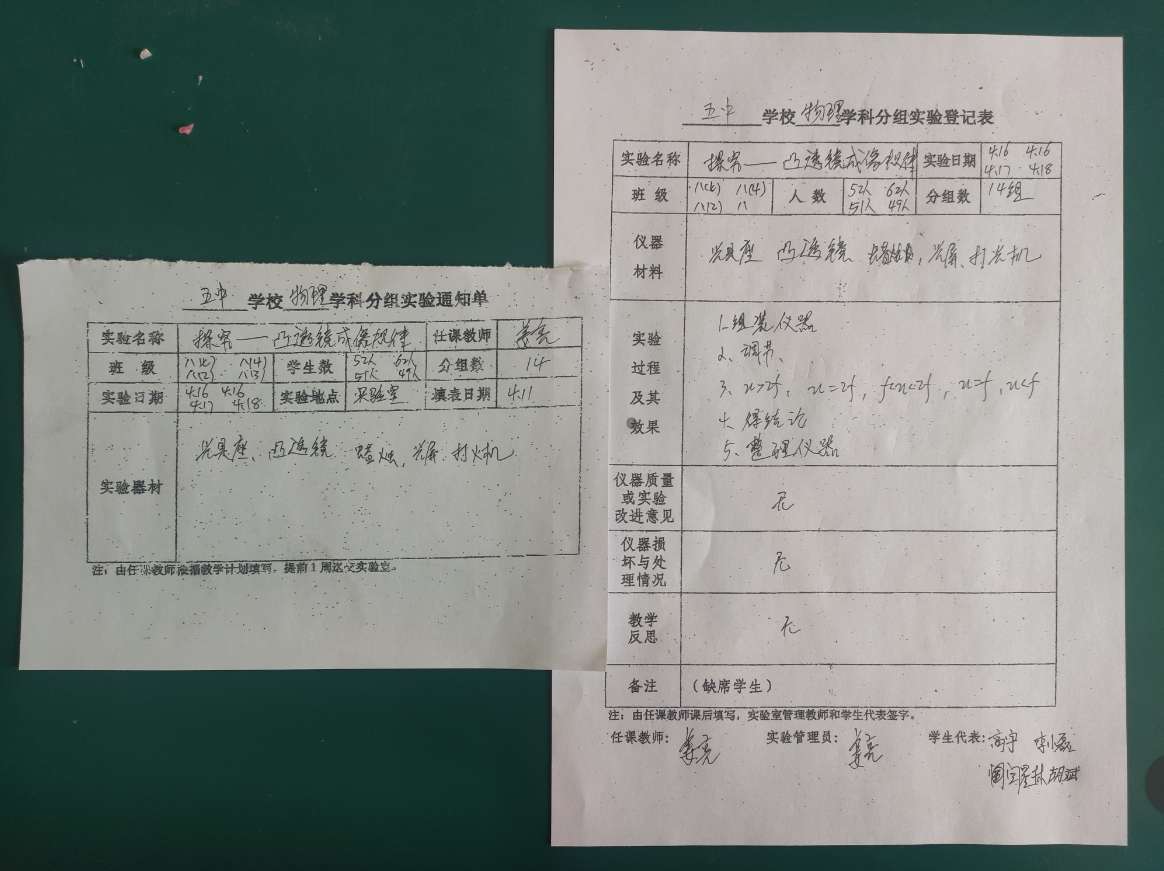 五中 学校 物理 学科分组实验通知单
实验名称 探究——凸透镜成像规律 任课教师 姜亮
班 级 八(1) 八(4) 学生数 52人 62人 分组数 14
八(2) 八(3) 51人 49人
实验日期 4.16 4.16 实验地点 实验室 填表日期 4.11
4.17 4.18
实验器材 光具座、凸透镜 蜡烛、光屏、打火机
注:由任课教师根据教学计划填写,提前1周送交实验室。
五中 学校 物理 学科分组实验登记表
实验名称 探究——凸透镜成像规律 实验日期 4.16 4.16
4.17 4.18
班 级 八(4) 人 数 52人 62人 分组数 14组
八(2) 八 51人 49人
仪器材料 光具座 凸透镜 蜡烛,光屏、打火机
实验过程及其效果
1.组装仪器
2、调节、
3、u>2f, u=2f, f<u<2f, u=f, u<f
4.得结论
5、整理仪器
仪器质量或实验改进意见 无
仪器损坏与处理情况 无
教学反思 无
备注 (缺席学生)
注:由任课教师课后填写,实验室管理教师和学生代表签字。
任课教师:姜亮 实验管理员:姜亮 学生代表:高宇
胡斌